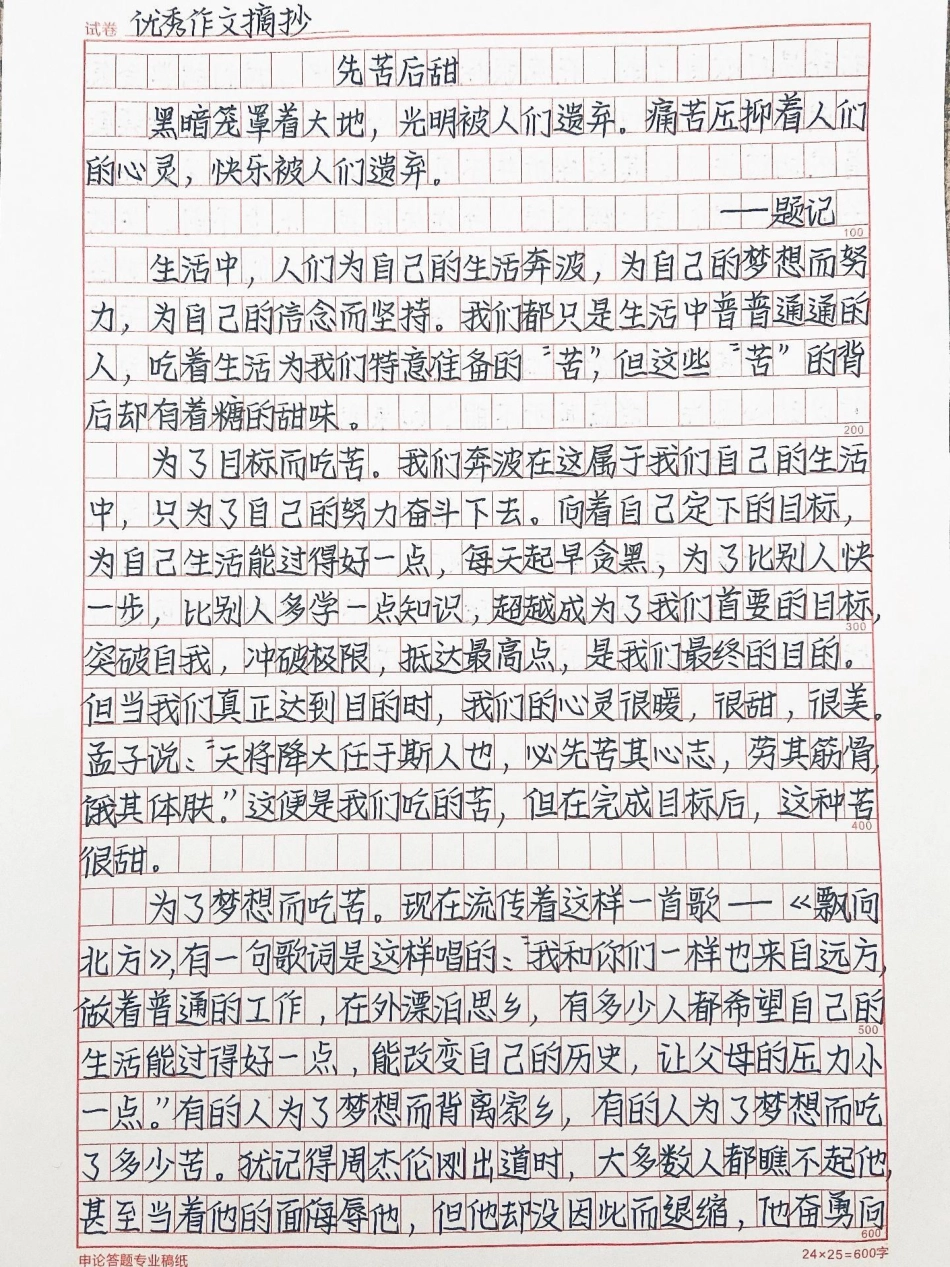 试卷 优秀作文摘抄
先苦后甜
黑暗笼罩着大地，光明被人们遗弃。痛苦压抑着人们
的心灵，快乐被人们遗弃。
——题记
100
生活中，人们为自己的生活奔波，为自己的梦想而努
力，为自己的信念而坚持。我们都只是生活中普普通通的
人，吃着生活为我们特意准备的“苦”，但这些“苦”的背
后却有着糖的甜味。
200
为了目标而吃苦。我们奔波在这属于我们自己的生活
中，只为了自己的努力奋斗下去。向着自己定下的目标，
为自己生活能过得好一点，每天起早贪黑，为了比别人快
一步，比别人多学一点知识，超越成为了我们首要的目标，
300
突破自我，冲破极限，抵达最高点，是我们最终的目的。
但当我们真正达到目的时，我们的心灵很暖，很甜，很美。
孟子说：“天将降大任于斯人也，必先苦其心志，劳其筋骨，
饿其体肤。”这便是我们吃的苦，但在完成目标后，这种苦
400
很甜。
为了梦想而吃苦。现在流传着这样一首歌——《飘向
北方》，有一句歌词是这样唱的：“我和你们一样也来自远方，
做着普通的工作，在外漂泊思乡，有多少人都希望自己的
500
生活能过得好一点，能改变自己的历史，让父母的压力小
一点。”有的人为了梦想而背离家乡，有的人为了梦想而吃
了多少苦。犹记得周杰伦刚出道时，大多数人都瞧不起他，
甚至当着他的面侮辱他，但他却没因此而退缩，他奋勇向
600
申论答题专业稿纸
24×25=600字